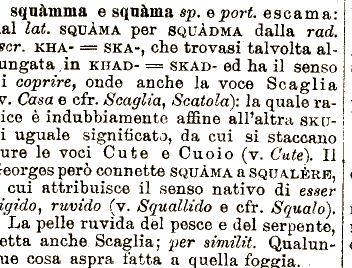 squàmma e squàma sp. e port. escama:
al lat. SQUÀMA per SQUÀDMA dalla rad.
scr. KHA- = SKA-, che trovasi talvolta al-
ungata in KHAD- = SKAD- ed ha il senso
i coprire, onde anche la voce Scaglia
v. Casa e cfr. Scaglia, Scatola): la quale ra-
ice è indubbiamente affine all'altra SKU-
i uguale significato, da cui si staccano
ure le voci Cute e Cuoio (v. Cute). Il
eorges però connette SQUÀMA a SQUALÈRE,
cui attribuisce il senso nativo di esser
igido, ruvido (v. Squallido e cfr. Squalo).
La pelle ruvida del pesce e del serpente,
etta anche Scaglia; per similit. Qualun-
ue cosa aspra fatta a quella foggia.